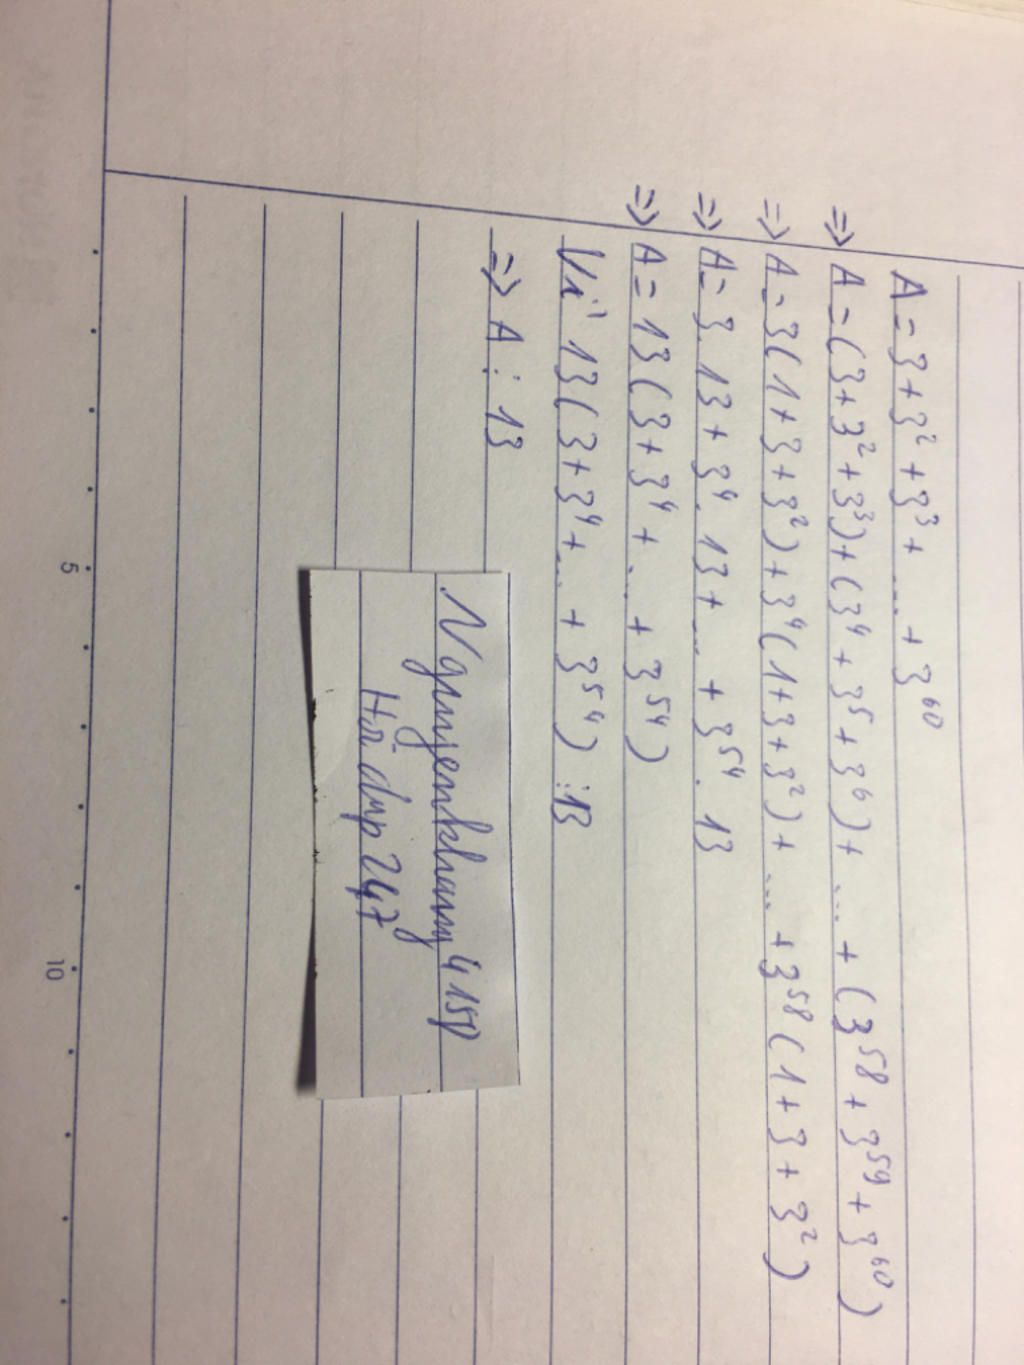 A = 3 + 3² + 3³ + .... + 3⁶⁰
=> A = (3 + 3² + 3³) + (3⁴ + 3⁵ + 3⁶) + ... + (3⁵⁸ + 3⁵⁹ + 3⁶⁰)
=> A = 3(1 + 3 + 3²) + 3⁴(1 + 3 + 3²) + ... + 3⁵⁸(1 + 3 + 3²)
=> A = 3. 13 + 3⁴. 13 + ... + 3⁵⁴. 13
=> A = 13(3 + 3⁴ + ... + 3⁵⁴)
Vì 13(3 + 3⁴ + ... + 3⁵⁴) ⋮ 13
=> A ⋮ 13
Nguyenkhang4150
Hỏi đáp 247
5
10